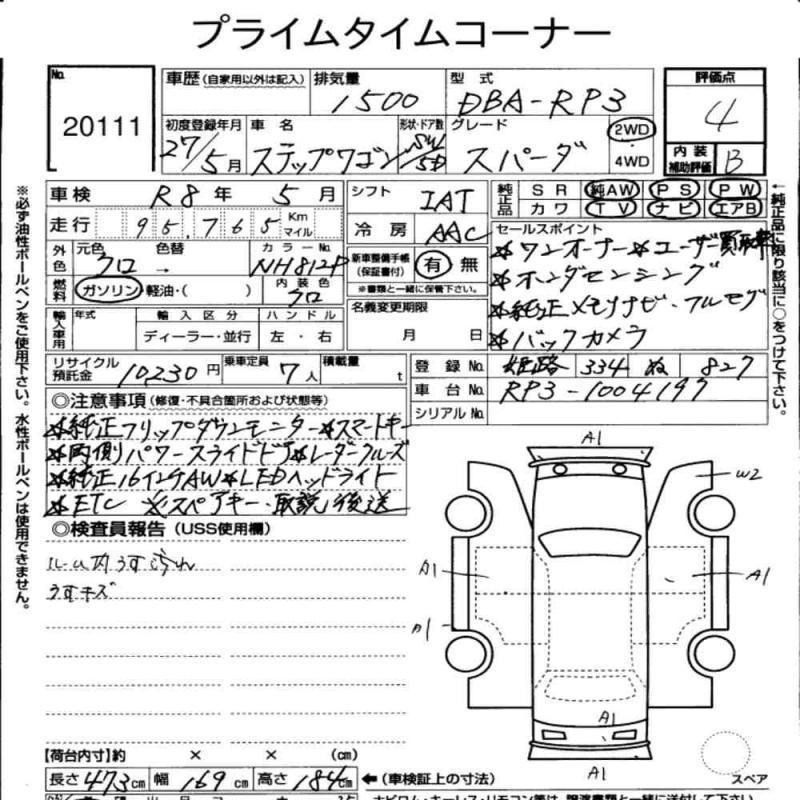 プライムタイムコーナー
No. 20111
車歴(自家用以外は記入) 排気量 1500 型式 DBA-RP3
初度登録年月 27/5月 車名 ステップワゴン 形状・ドア数 SW/5D グレード スパーダ 2WD 4WD
評価点 4
内装補助評価 B
車検 R8年 5月 シフト IAT
走行 95,765 Km マイル 冷房 AAC
純正品 SR 純AW PS PW
カワ TV ナビ エアB
外色 元色 クロ 色替 → カラーNo. NH812P
燃料 ガソリン・軽油・( ) 内装色 クロ
新車整備手帳(保証書付) 有 無
※書類と一緒に保管下さい。
セールスポイント
※ワンオーナー※ユーザー買取車
※ホンダセンシング
※純正メモリナビ・フルセグ
※バックカメラ
輸入車用 年式 輸入区分 ハンドル
ディーラー・並行 左・右
名義変更期限 月 日
リサイクル預託金 10230円 乗車定員 7人 積載量 t
登録No. 姫路 334 ぬ 827
車台No. RP3-1004197
シリアルNo.
◎注意事項(修復・不具合箇所および状態等)
※純正フリップダウンモニター※スマートキー
※両側パワースライドドア※レーダークルーズ
※純正16インチAW※LEDヘッドライト
※ETC ※スペアキー・取説、後送
◎検査員報告(USS使用欄)
ルーム内うす汚れ
うすキズ
A1
W2
A1
A1
A1
A1
A1
スペア
【荷台内寸】約 × × (cm)
長さ 473cm 幅 169cm 高さ 184cm ←(車検証上の寸法)
※必ず油性ボールペンをご使用下さい。水性ボールペンは使用できません。
←純正品に限り該当に○をつけて下さい。